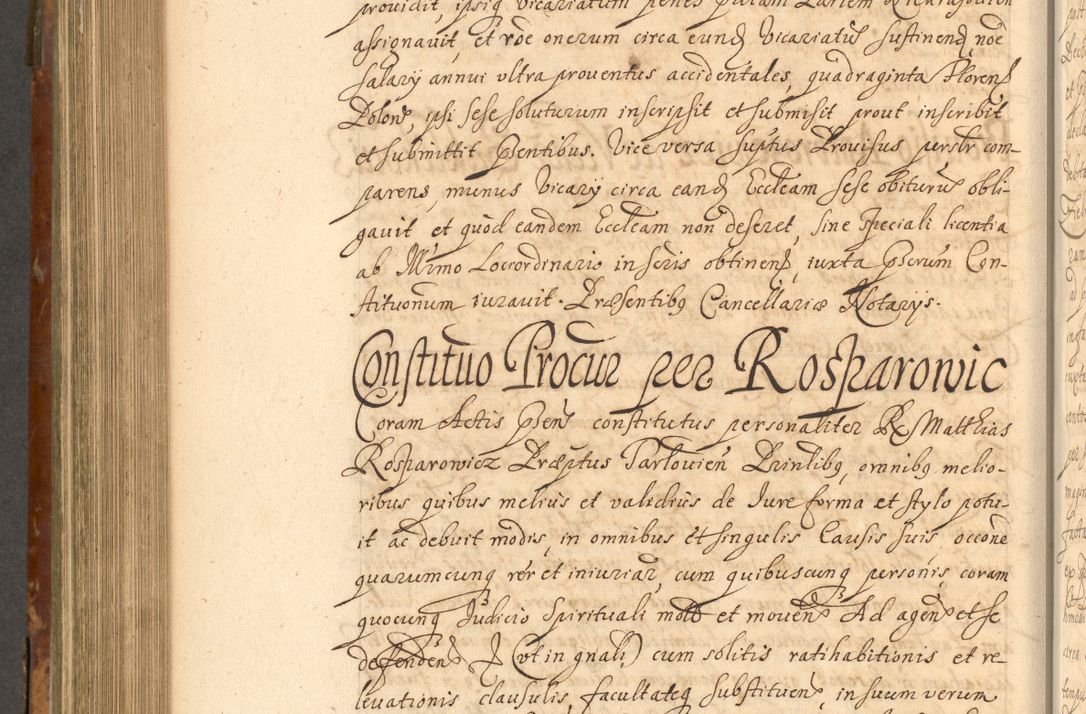 providit, ipsiq vicariatum penes
assignavit, et rõe onerum circa eund vicariatus sustinend nõe
salary annui ultra proventus accidentales, quadraginta Floren
Polon, ipsi sese soluturum inscripsit et submisit prout inscribit
et submittit psentibus. Vice versa suptus Provisus perslr com-
parens, munus vicary circa eand Eccleam sese obiturū obli-
gavit et quòd eandem Eccleam non deseret, sine speciali licentia
ab Illrmo Locordinario in scris obtinend, iuxta pscrum Con-
stituonum iuravit. Præsentibq Cancellariæ Notarys.
Constituo Procur per Rosparowic
Coram Actis psens constitutus personaliter R. Matthias
Rosparowicz Præptus Tarlovien Printibq, omnibq melio-
ribus quibus melius et validius de Iure forma et stylo potu-
it ac debuit modis, in omnibus et singulis Causis suis, occone
quarumcunq rér et iniuriar, cum quibuscunq personis, coram
quocunq Iudicio Spirituali moto et movend Ad agend et se
defendend & (ut in gnali) cum solitis ratihabitionis et re-
levationis clausulis, facultateq substituend, in suum verum